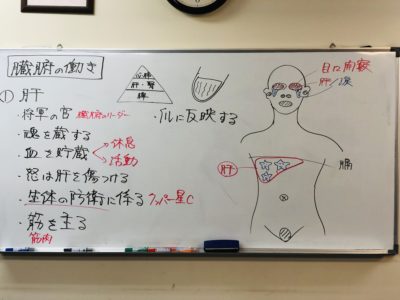 臓腑の働き
① 肝
・将軍の官 臓腑のリーダー
・魂を蔵する
・血を貯蔵 休息
活動
・怒は肝を傷つける
・生体の防衛に係る クッパー星C
・筋を主る
筋肉
心・肺
肝・腎
脾
・爪に反映する
目に開竅
肝 涙
肝
膈